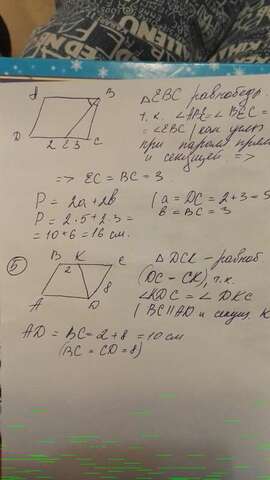 A B
△ EBC равнобедр.
т.к. ∠ABE = ∠BEC =
= ∠EBC (как
при паралл. прям
и секущей. =>
D 2 E 3 C
=> EC = BC = 3.
P = 2a + 2b
P = 2·5 + 2·3 =
= 10 + 6 = 16 см.
a = DC = 2 + 3 = 5
b = BC = 3
5 B K C
2
8
A D
△ DCK - равноб
(DC - CK), т.к.
∠KDC = ∠ DKC
(BC || AD и секущ. K
AD = BC = 2 + 8 = 10 см
(BC = CD = 8)